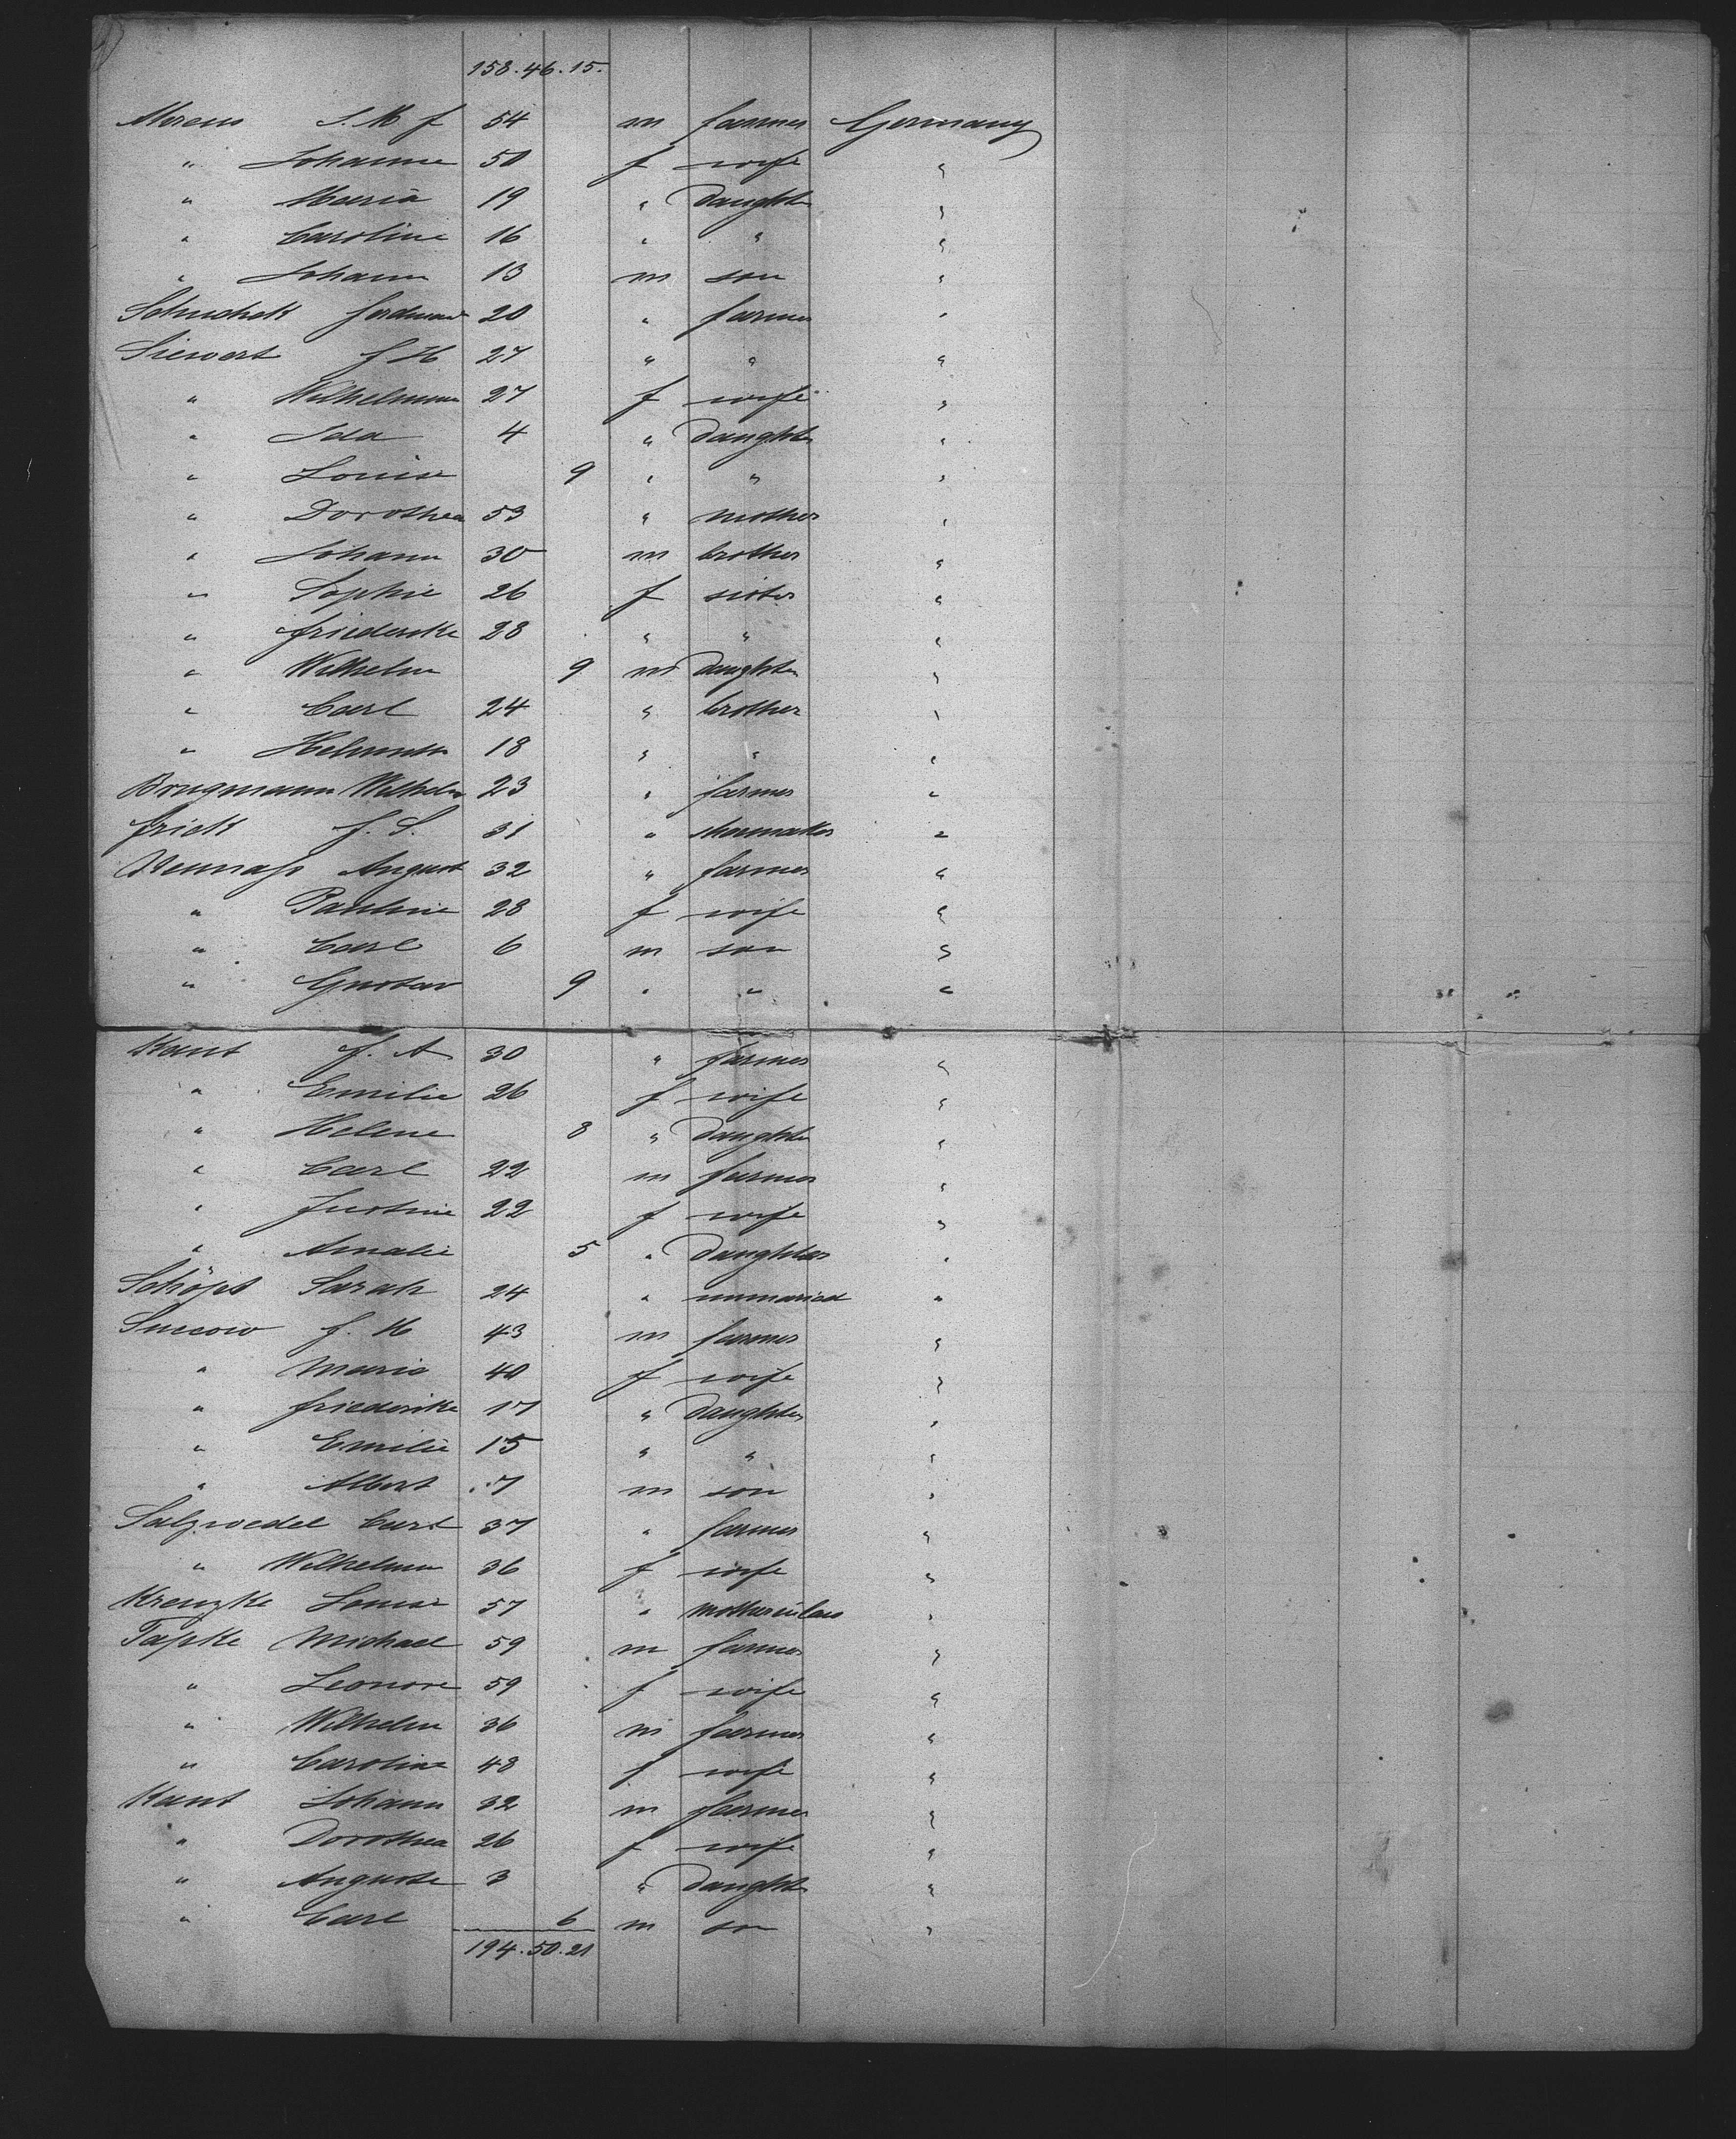 158. 46. 15.
Ahrens J. M. J 54 m farmer Germany
" Johanne 50 f wife "
" Maria 19 " daughter "
" Caroline 16 " " "
" Johann 13 m son "
Ferdinand 20 " farmer "
Siewert J H 27 " " "
" Wilhelmine 27 f wife "
" Ida 4 " daughter "
" Louise 9 " " "
" Dorothea 53 " mother "
" Johann 30 m brother "
" Sophie 26 f sister "
" Friederike 28 " " "
" Wilhelm 9 m daughter "
" Carl 24 " brother "
" Helmuth 18 " " "
Brugmann Wilhelm 23 " farmer "
Frick J. S. 31 " shoemaker "
August 32 " farmer "
" Pauline 28 f wife "
" Carl 6 m son "
" Gustav 9 " " "
Kant J. A 30 " farmer "
" Emilie 26 f wife "
" Helene 8 " daughter "
" Carl 22 m farmer "
" Justine 22 f wife "
" Amalie 5 " daughter "
Sarah 24 " unmaried "
Succow J. H 43 m farmer "
" Maria 40 f wife "
" Friederike 17 " daughter "
" Emilie 15 " " "
" Albert 7 m son "
Salzwedel Carl 37 " farmer "
" Wilhelmine 36 f wife "
Krenzke Louise 57 " motherinlaw "
Tapke Michael 59 m farmer "
" Leonore 59 f wife "
" Wilhelm 36 m farmer "
" Caroline 48 f wife "
Kant Johann 32 m farmer "
" Dorothea 26 f wife "
" Auguste 3 " daughter "
" Carl 6 m son "
194. 50. 21